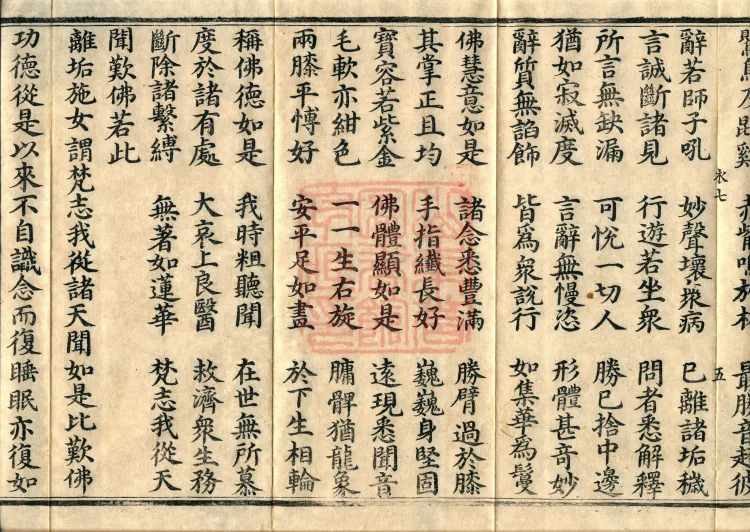 鵞鳥及鵾雞 赤觜 最勝音超彼
永七
五
辭若師子吼 妙聲壞眾病 已離諸垢穢
言誠斷諸見 行遊若坐眾 問者悉解釋
所言無缺漏 可悅一切人 勝已捨中邊
猶如寂滅度 言辭無慢恣 形體甚奇妙
辭質無諂飾 皆為眾說行 如集華為鬘
佛慧意如是 諸念悉豐滿 勝臂過於膝
其掌正且均 手指纖長好 巍巍身堅固
寶容若紫金 佛體顯如是 遠現悉聞音
毛軟亦紺色 一一生右旋 𦟛髀猶龍象
兩膝平慱好 安平足如畫 於下生相輪
稱佛德如是 我時粗聽聞 在世無所慕
度於諸有處 大哀上良醫 救濟眾生務
斷除諸繫縛 無著如蓮華 梵志我從天
聞歎佛若此
離垢施女謂梵志我從諸天聞如是比歎佛
功德從是以來不自識念而復睡眠亦復如